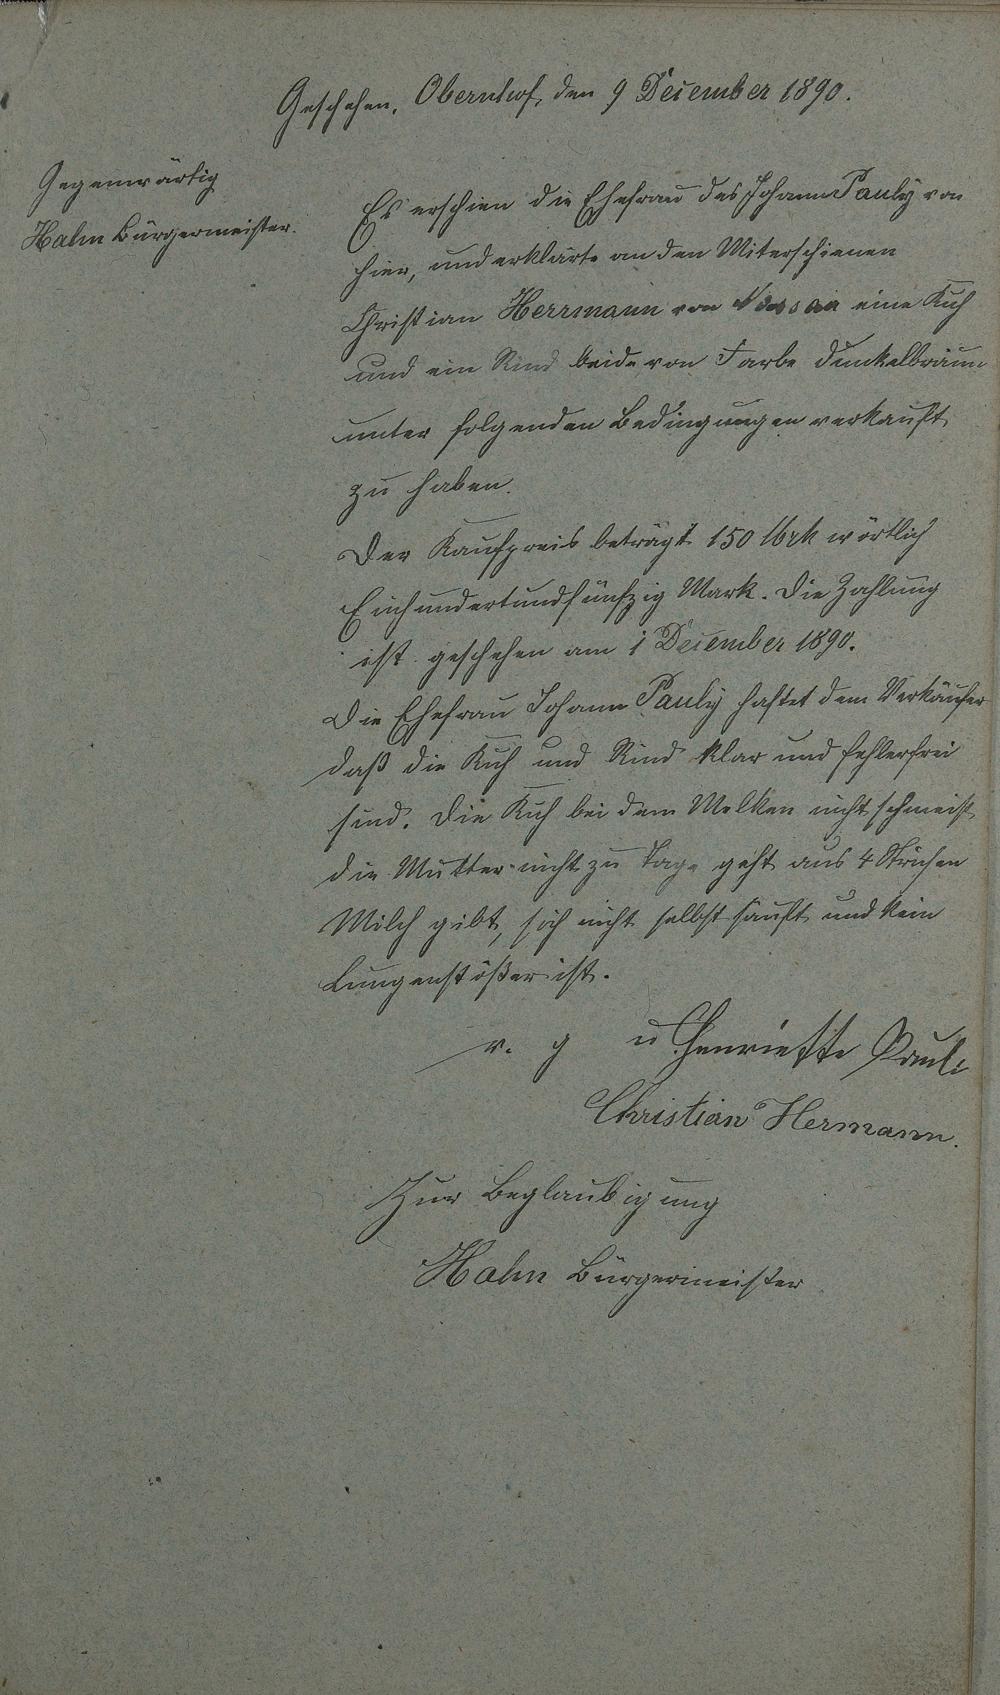 Geschehen, Obernhof, den 9 December 1890.
Gegenwärtig
Hahn Bürgermeister.
Es erschien die Ehefrau des Johann Pauly von
hier, und erklärte an den Miterschienen
Christian Herrmann von Nassau eine Kuh
und ein Rind beide von Farbe dunkelbraun
unter folgenden Bedingungen verkauft
zu haben.
Der Kaufpreis beträgt 150 Mrk wörtlich
Einhundertundfünfzig Mark. Die Zahlung
ist geschehen am 1 December 1890.
Die Ehefrau Johann Pauly haftet dem Verkäufer
daß die Kuh und Rind klar und fehlerfrei
sind. Die Kuh bei dem Melken nicht schmeist
die Mutter nicht zu Tage geht aus 4 Strichen
Milch gibt, sich nicht selbst sauft und kein
Lungenstößer ist.
v. g u Henriette Pauli
Christian Hermann.
Zur Beglaubigung
Hahn Bürgermeister